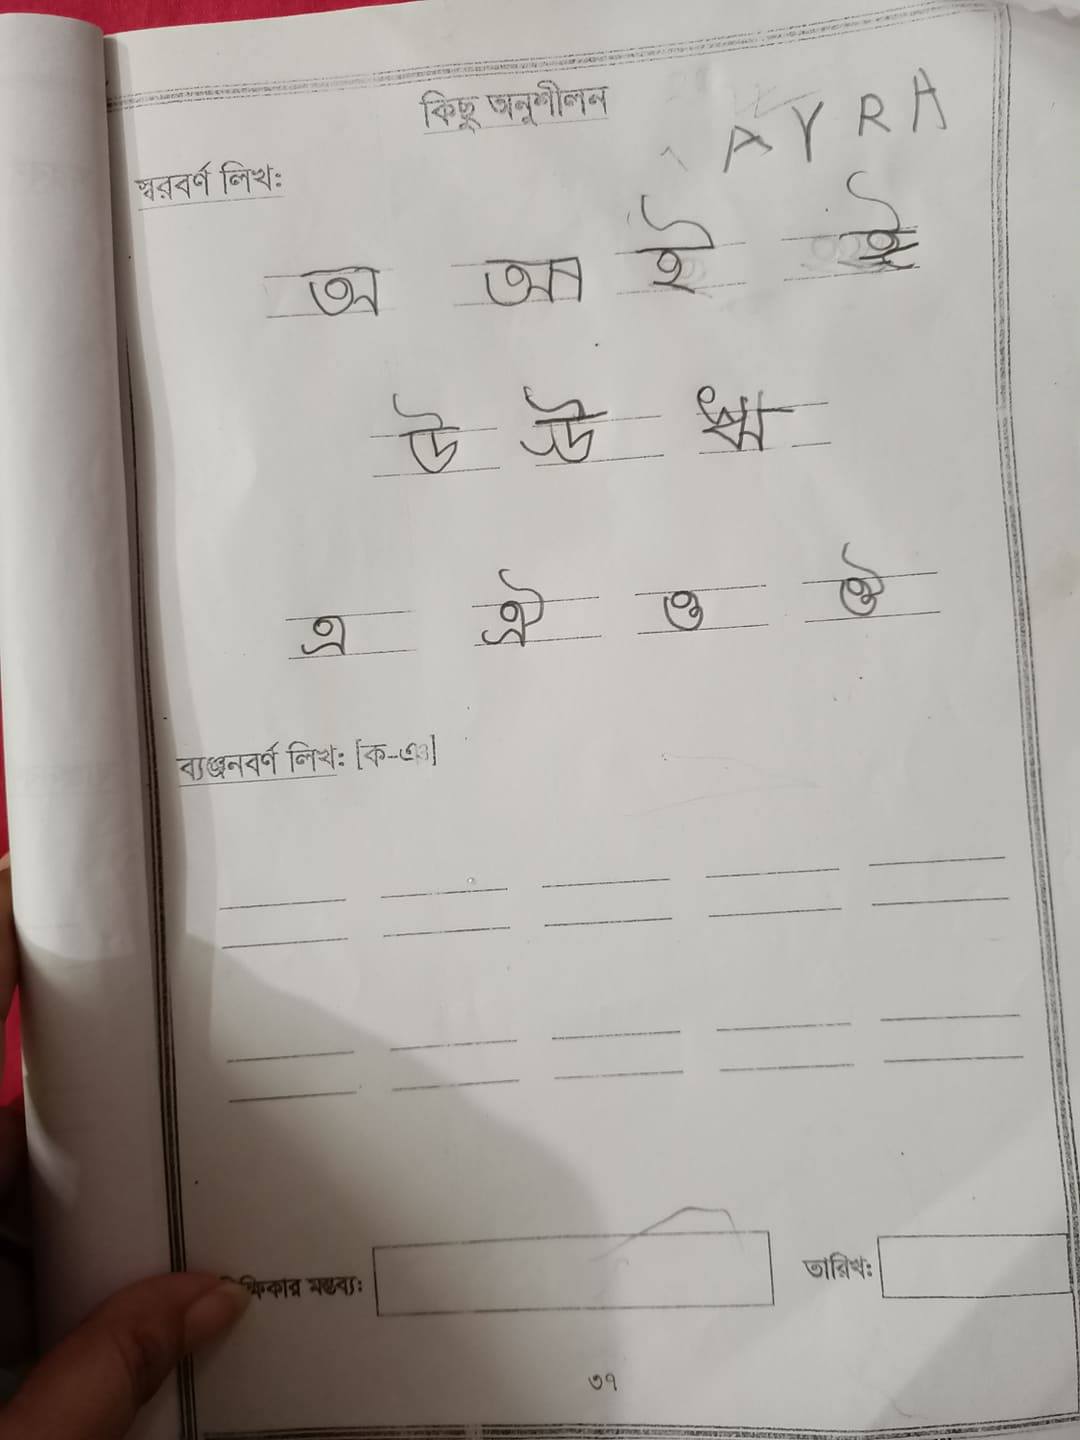 কিছু অনুশীলন
AYRA
স্বরবর্ণ লিখ:
অ আ ই ঈ
উ ঊ ঋ
এ ঐ ও ঔ
ব্যঞ্জনবর্ণ লিখ: [ক-ঞ]
মন্তব্য:
তারিখ:
৩৭